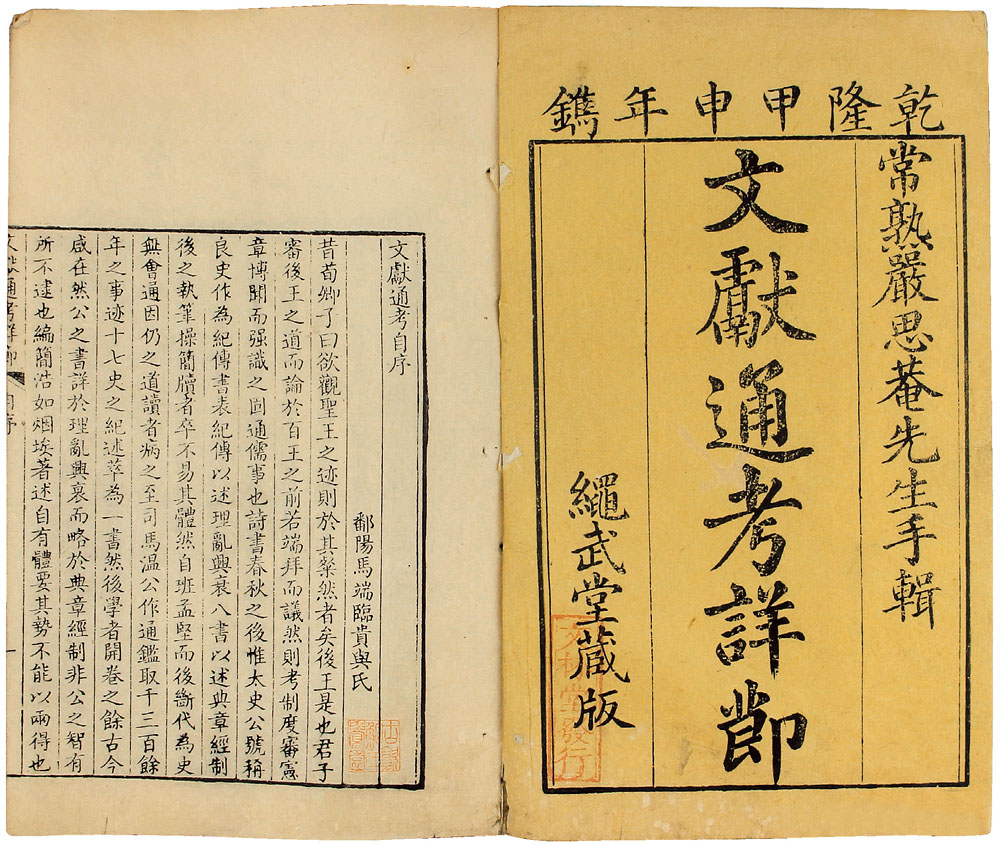 乾隆甲申年鐫
常熟嚴思菴先生手輯
文獻通考詳節
繩武堂藏版
文林堂發行
文獻通考自序
鄱陽馬端臨貴與氏
昔荀卿子曰欲觀聖王之迹則於其粲然者矣後王是也君子
審後王之道而論於百王之前若端拜而議然則考制度審憲
章博聞而强識之固通儒事也詩書春秋之後惟太史公號稱
良史作為紀傳書表紀傳以述理亂興衰八書以述典章經制
後之執筆操簡牘者卒不易其體然自班孟堅而後斷代為史
無會通因仍之道讀者病之至司馬温公作通鑑取千三百餘
年之事迹十七史之紀述萃為一書然後學者開卷之餘古今
咸在然公之書詳於理亂興衰而略於典章經制非公之智有
所不逮也編簡浩如烟埃著述自有體要其勢不能以兩得也
文獻通考詳節
自序
一